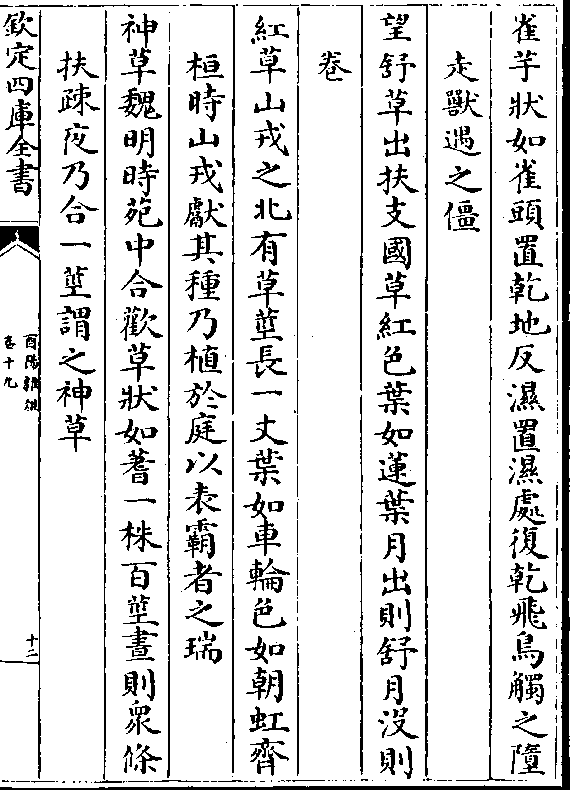 雀芋狀如雀頭置乾地反濕置濕處復乾飛鳥觸之墮
走獸遇之僵
望舒草出扶支國草紅色葉如蓮葉月出則舒月沒則
卷
紅草山戎之北有草莖長一丈葉如車輪色如朝虹齊
桓時山戎獻其種乃植於庭以表霸者之瑞
神草魏明時苑中合歡草狀如蓍一株百莖晝則衆條
扶疎夜乃合一莖謂之神草
欽定四庫全書
酉陽雜俎
卷十九
十二